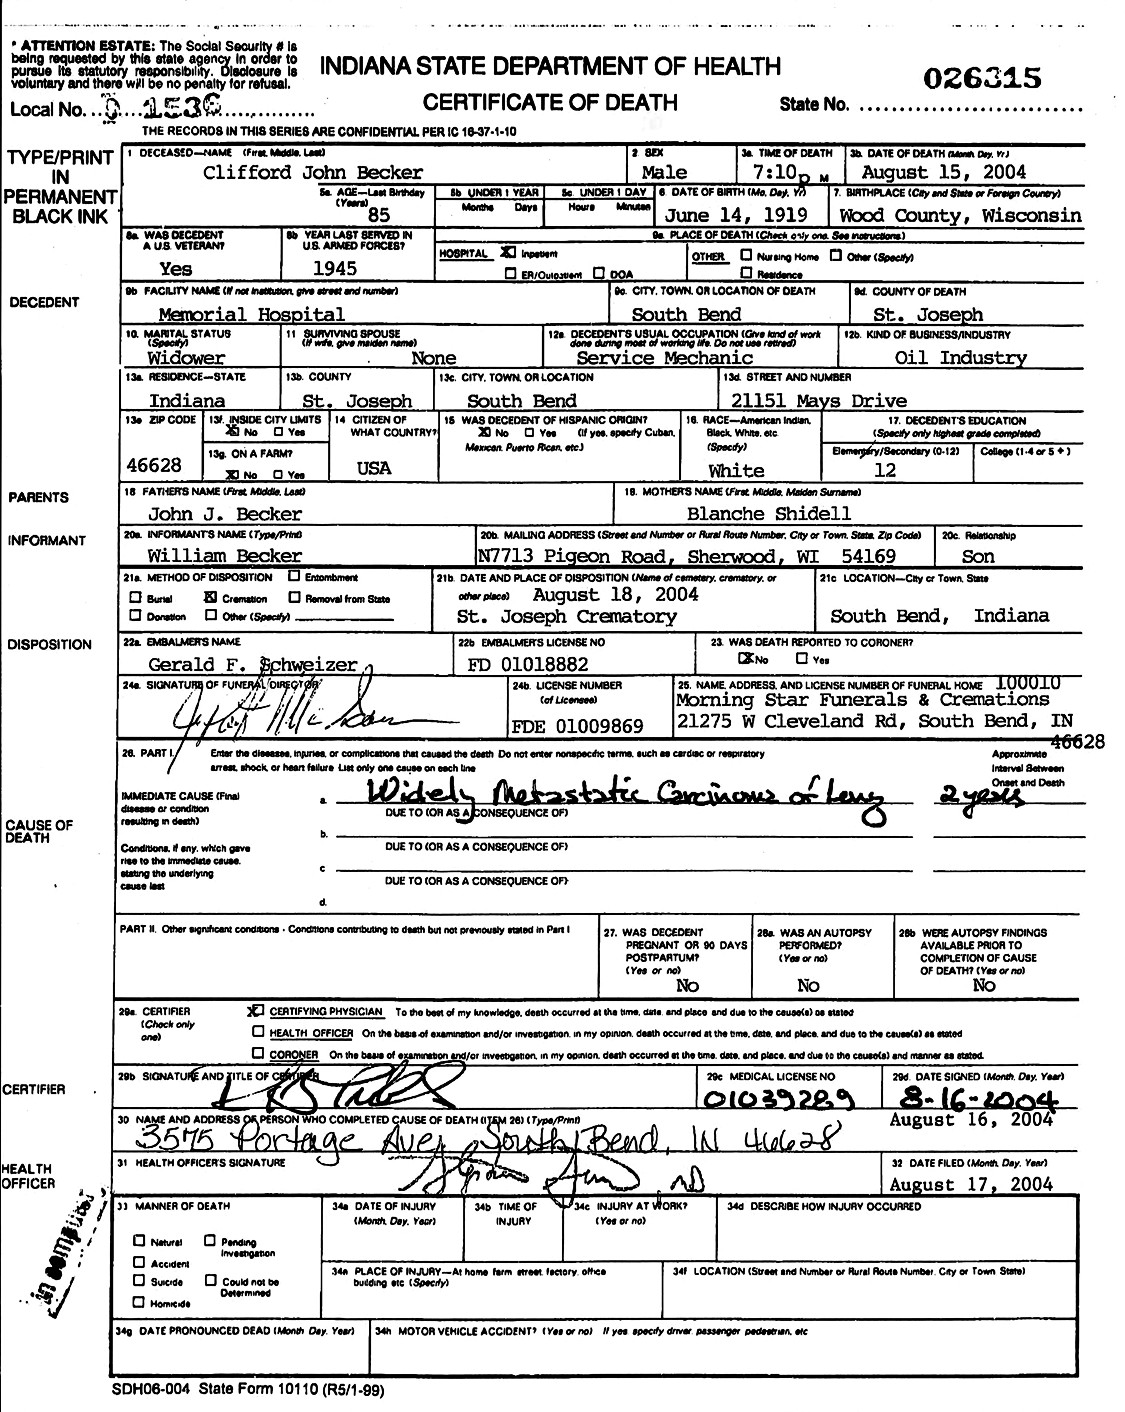 * ATTENTION ESTATE: The Social Security # is
being requested by this state agency in order to
pursue its statutory responsibility. Disclosure is
voluntary and there will be no penalty for refusal.
INDIANA STATE DEPARTMENT OF HEALTH
CERTIFICATE OF DEATH
026315
Local No.
State No.
THE RECORDS IN THIS SERIES ARE CONFIDENTIAL PER IC 16-37-1-10
TYPE/PRINT
IN
PERMANENT
BLACK INK
1 DECEASED—NAME (First, Middle, Last)
Clifford John Becker
2 SEX
Male
3a TIME OF DEATH
7:10p M
3b DATE OF DEATH (Month Day, Yr)
August 15, 2004
5a AGE—Last Birthday
(Years)
85
5b UNDER 1 YEAR
Months Days
5c UNDER 1 DAY
Hours Minutes
6 DATE OF BIRTH (Mo, Day, Yr)
June 14, 1919
7. BIRTHPLACE (City and State or Foreign Country)
Wood County, Wisconsin
8a WAS DECEDENT
A U.S. VETERAN?
Yes
8b YEAR LAST SERVED IN
U.S. ARMED FORCES?
1945
9a PLACE OF DEATH (Check only one. See instructions)
HOSPITAL Inpatient
ER/Outpatient DOA
OTHER: Nursing Home Other (Specify)
Residence
DECEDENT
9b FACILITY NAME (If not institution, give street and number)
Memorial Hospital
9c. CITY, TOWN, OR LOCATION OF DEATH
South Bend
9d. COUNTY OF DEATH
St. Joseph
10. MARITAL STATUS
(Specify)
Widower
11 SURVIVING SPOUSE
(If wife, give maiden name)
None
12a DECEDENT'S USUAL OCCUPATION (Give kind of work
done during most of working life. Do not use retired)
Service Mechanic
12b. KIND OF BUSINESS/INDUSTRY
Oil Industry
13a RESIDENCE—STATE
Indiana
13b. COUNTY
St. Joseph
13c. CITY, TOWN, OR LOCATION
South Bend
13d. STREET AND NUMBER
21151 Mays Drive
13e ZIP CODE
46628
13f. INSIDE CITY LIMITS
No Yes
13g. ON A FARM?
No Yes
14 CITIZEN OF
WHAT COUNTRY?
USA
15 WAS DECEDENT OF HISPANIC ORIGIN?
No Yes (If yes, specify Cuban,
Mexican, Puerto Rican, etc.)
16. RACE—American Indian,
Black, White, etc.
(Specify)
White
17. DECEDENT'S EDUCATION
(Specify only highest grade completed)
Elementary/Secondary (0-12) College (1-4 or 5 +)
12
PARENTS
18 FATHER'S NAME (First, Middle, Last)
John J. Becker
19. MOTHER'S NAME (First, Middle, Maiden Surname)
Blanche Shidell
INFORMANT
20a INFORMANT'S NAME (Type/Print)
William Becker
20b. MAILING ADDRESS (Street and Number or Rural Route Number, City or Town, State, Zip Code)
N7713 Pigeon Road, Sherwood, WI 54169
20c. Relationship
Son
21a. METHOD OF DISPOSITION Entombment
Burial Cremation Removal from State
Donation Other (Specify)
21b. DATE AND PLACE OF DISPOSITION (Name of cemetery, crematory, or
other place) August 18, 2004
St. Joseph Crematory
21c LOCATION—City or Town, State
South Bend, Indiana
DISPOSITION
22a EMBALMER'S NAME
Gerald F. Schweizer
22b EMBALMER'S LICENSE NO
FD 01018882
23. WAS DEATH REPORTED TO CORONER?
No Yes
24a. SIGNATURE OF FUNERAL DIRECTOR
24b. LICENSE NUMBER
(of Licensee)
FDE 01009869
25. NAME, ADDRESS, AND LICENSE NUMBER OF FUNERAL HOME 100010
Morning Star Funerals & Cremations
21275 W Cleveland Rd, South Bend, IN
46628
26. PART I. Enter the diseases, injuries, or complications that caused the death Do not enter nonspecific terms, such as cardiac or respiratory
arrest, shock, or heart failure List only one cause on each line
Approximate
Interval Between
Onset and Death
CAUSE OF
DEATH
IMMEDIATE CAUSE (Final
disease or condition
resulting in death)
a. Widely Metastatic Carcinoma of Lung 2 years
DUE TO (OR AS A CONSEQUENCE OF)
b.
DUE TO (OR AS A CONSEQUENCE OF)
Conditions, if any, which gave
rise to the immediate cause,
stating the underlying
cause last
c
DUE TO (OR AS A CONSEQUENCE OF)
d.
PART II. Other significant conditions - Conditions contributing to death but not previously stated in Part I
27. WAS DECEDENT
PREGNANT OR 90 DAYS
POSTPARTUM?
(Yes or no)
No
28a. WAS AN AUTOPSY
PERFORMED?
(Yes or no)
No
28b WERE AUTOPSY FINDINGS
AVAILABLE PRIOR TO
COMPLETION OF CAUSE
OF DEATH? (Yes or no)
No
29a. CERTIFIER
(Check only
one)
CERTIFYING PHYSICIAN To the best of my knowledge, death occurred at the time, date, and place and due to the cause(s) as stated
HEALTH OFFICER On the basis of examination and/or investigation, in my opinion, death occurred at the time, date, and place, and due to the cause(s) as stated
CORONER On the basis of examination and/or investigation, in my opinion, death occurred at the time, date, and place, and due to the cause(s) and manner as stated.
CERTIFIER
29b SIGNATURE AND TITLE OF CERTIFIER
29c MEDICAL LICENSE NO
01039289
29d. DATE SIGNED (Month, Day, Year)
8-16-2004
August 16, 2004
30 NAME AND ADDRESS OF PERSON WHO COMPLETED CAUSE OF DEATH (ITEM 26) (Type/Print)
3575 Portage Ave, South Bend, IN 46628
HEALTH
OFFICER
31 HEALTH OFFICER'S SIGNATURE
MD
32 DATE FILED (Month, Day, Year)
August 17, 2004
33 MANNER OF DEATH
Natural Pending
Investigation
Accident
Suicide Could not be
Determined
Homicide
34a DATE OF INJURY
(Month, Day, Year)
34b TIME OF
INJURY
34c INJURY AT WORK?
(Yes or no)
34d DESCRIBE HOW INJURY OCCURRED
34e PLACE OF INJURY—At home farm street, factory, office
building etc (Specify)
34f LOCATION (Street and Number or Rural Route Number, City or Town State)
34g DATE PRONOUNCED DEAD (Month Day, Year)
34h MOTOR VEHICLE ACCIDENT? (Yes or no) If yes specify driver, passenger pedestrian, etc
SDH06-004 State Form 10110 (R5/1-99)